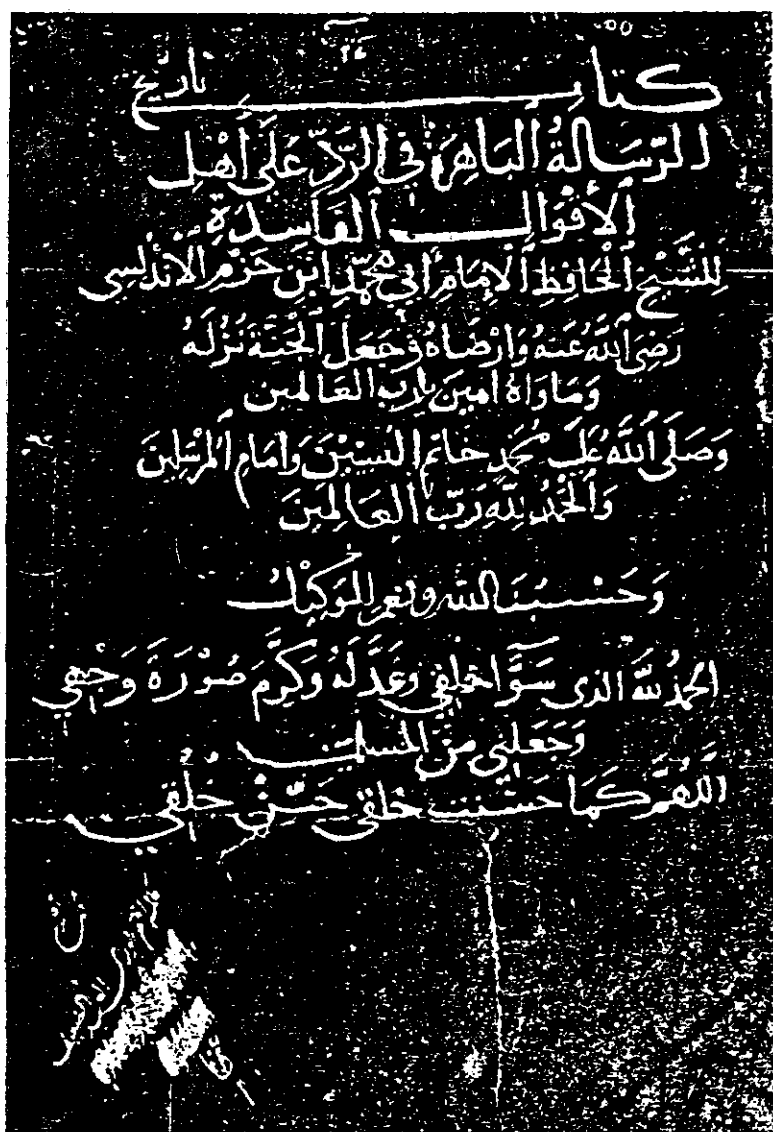 ٢٤
كتاب تاريخ
الرِّسَالَةُ البَاهِرَة في الرَّدِّ عَلَى أَهْلِ
الأَقْوَالِ الفَاسِدَةِ
لِلشَّيْخِ الْحَافِظِ الْإِمَامِ أبي مُحَمَّدِ ابْنِ حَزْمِ الْأَنْدَلُسِي
رَضِيَ اللَّهُ عَنْهُ وَأَرْضَاهُ وَجَعَلَ الْجَنَّةَ نُزُلَهُ
وَمَاوَاهُ امِينَ يَارَبَّ العَالمين
وَصَلَّى اللَّهُ عَلَى مُحَمَّدٍ خَاتَمِ النَّبِيِّنَ وَامَامِ الْمُرْسَلِينَ
وَالْحَمْدُ لِلَّهِ رَبِّ العَالَمِينَ
وَحَسْبُنَا الله وَنِعْمَ الْوَكِيل
الحمدُ للَّه الذى سَوَّا خلقي وَعَدَّلَهُ وَكَرَّمَ صُوْرَةَ وَجْهِي
وَجَعَلَنِى مِنَ المُسلمين
اللَّهُمَّ كَمَا حَسَّنْتَ خَلْقِى حَسِّنْ خُلُقِي